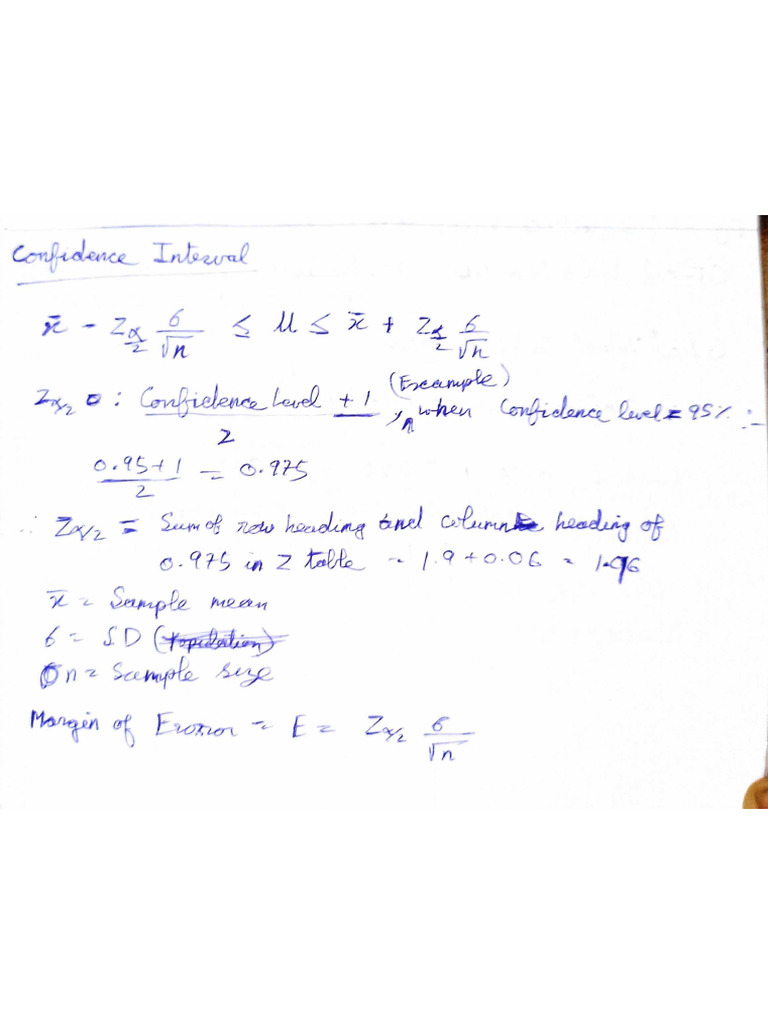 Confidence Interval
x̄ - Zα/2 σ/√n ≤ μ ≤ x̄ + Zα/2 σ/√n
Zα/2 : Confidence Level + 1 / 2 , when Confidence level = 95% :- (Example)
0.95+1 / 2 = 0.975
∴ Zα/2 = Sum of row heading and column heading of
0.975 in Z table = 1.9 + 0.06 = 1.96
x̄ = Sample mean
σ = SD (Population)
n = Sample size
Margin of Error = E = Zα/2 σ/√n